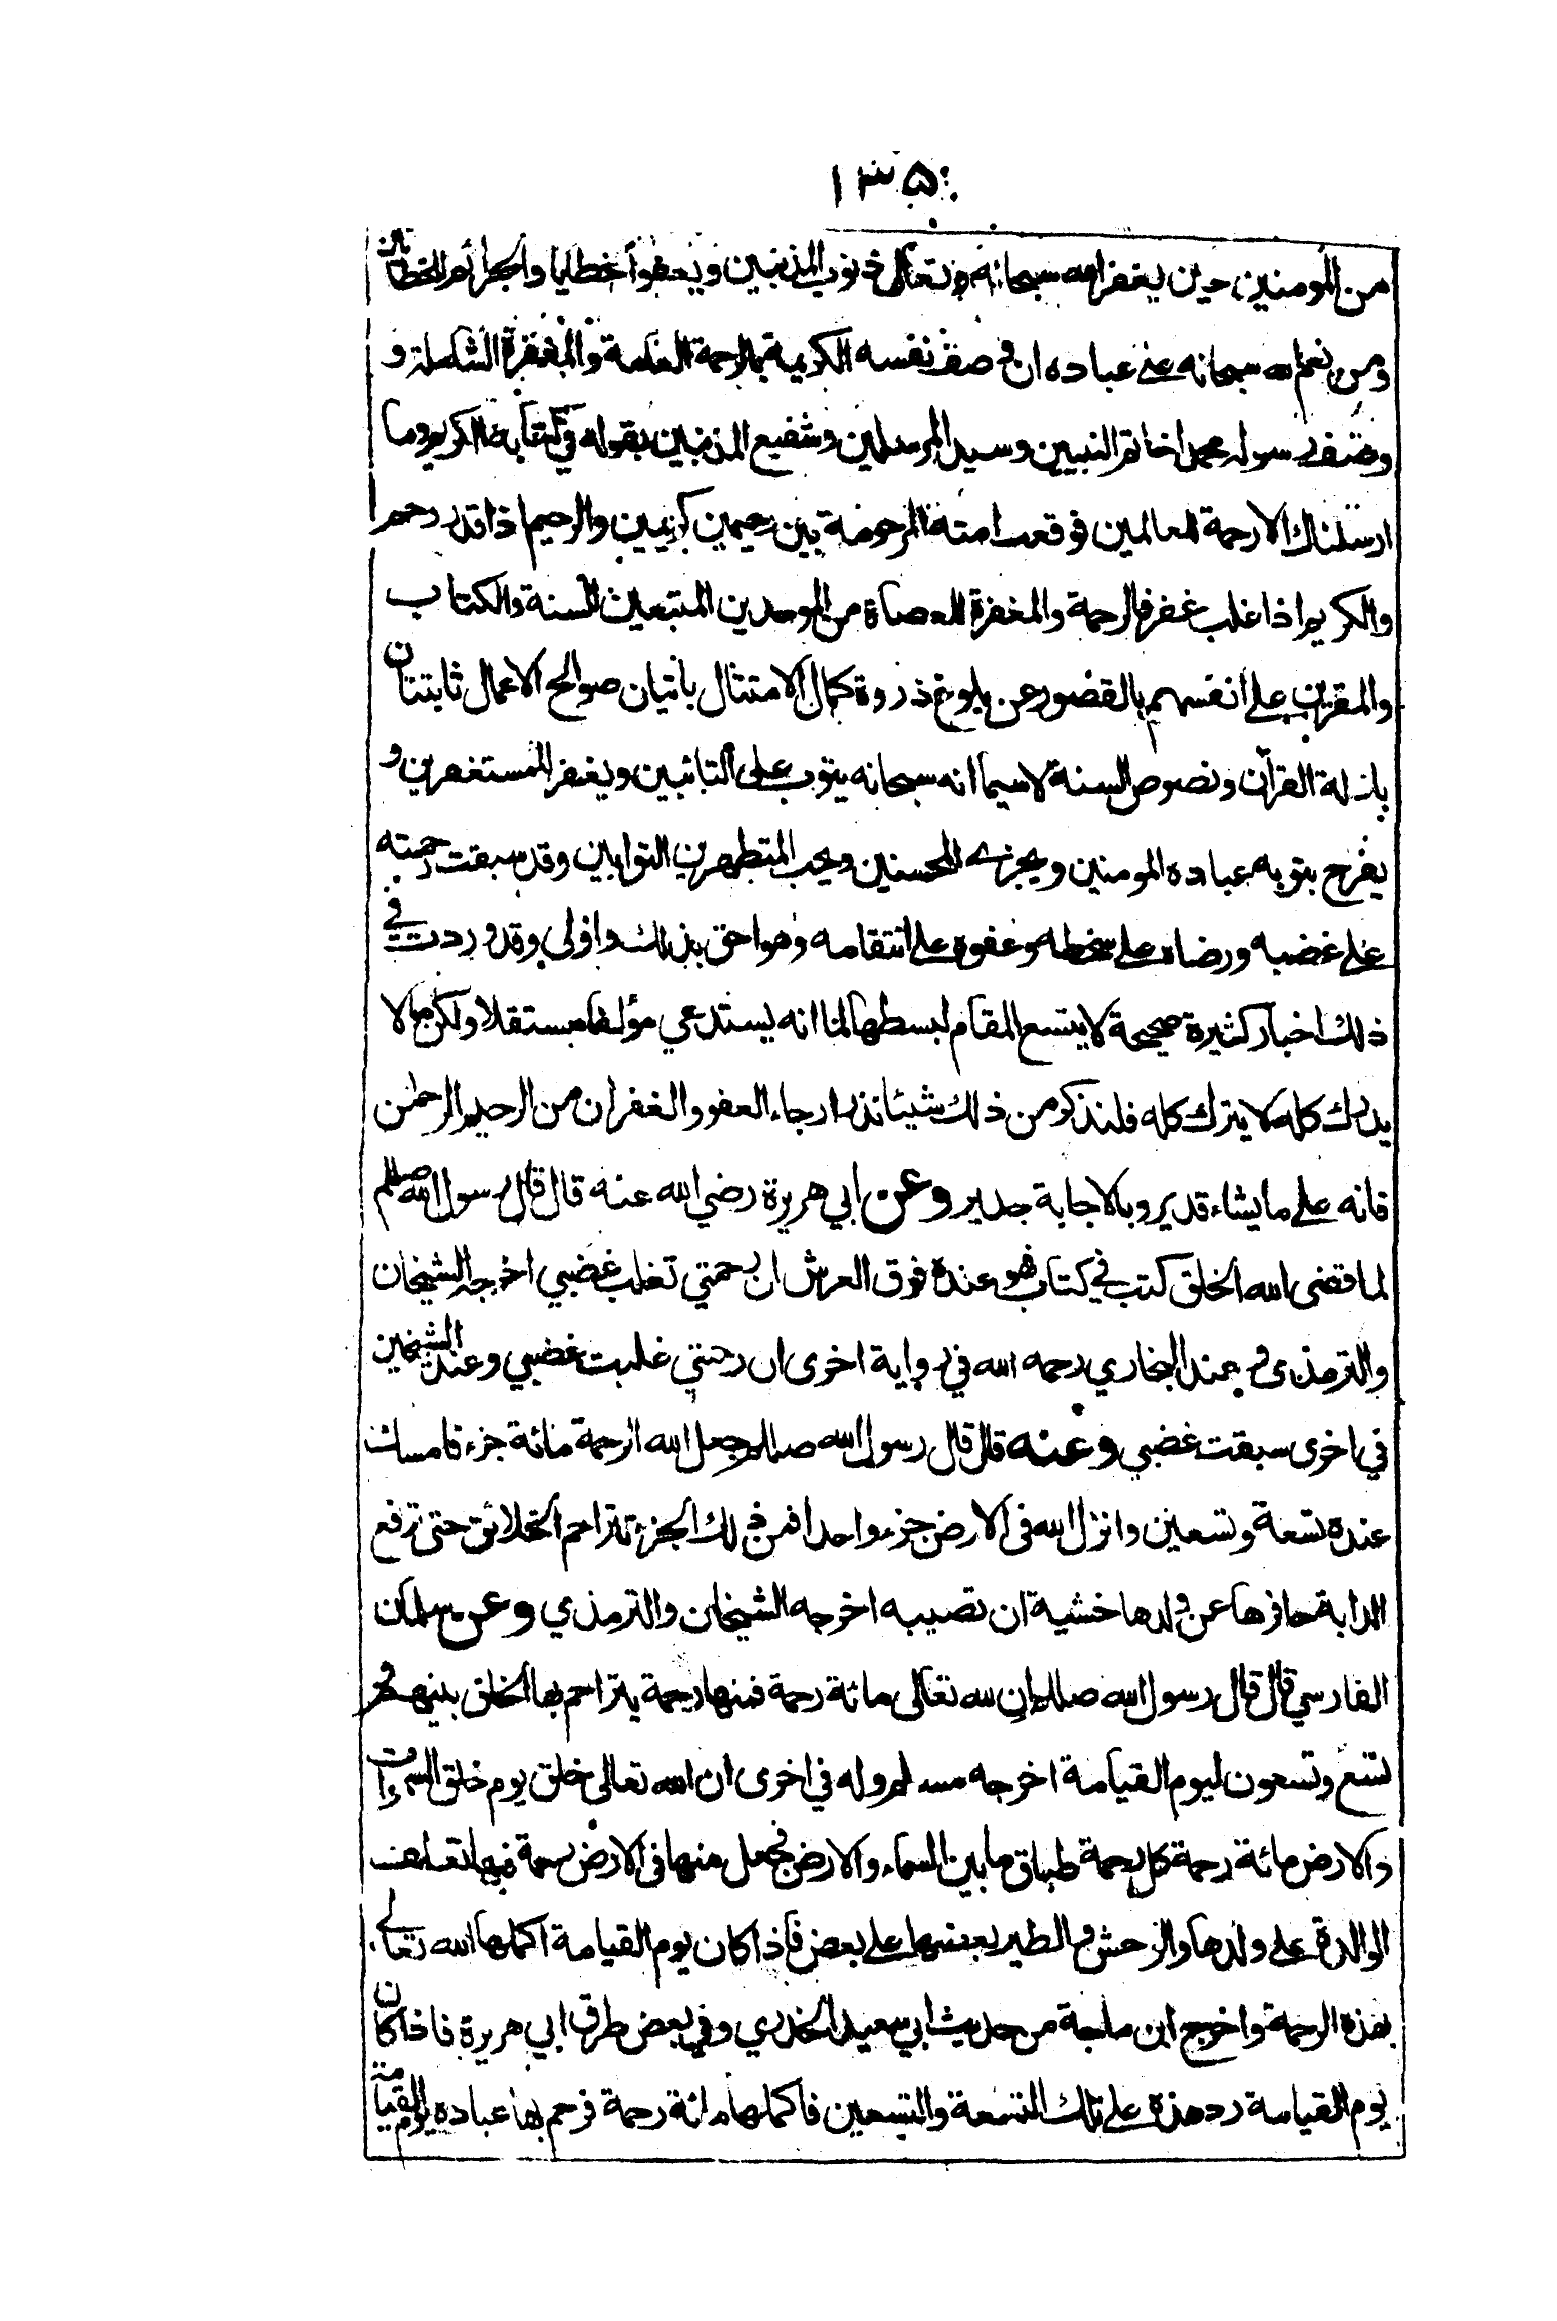 ١٣٥
من المومنين حين يغفر الله سبحانه وتعالى ذنوب المذنبين ويعفو خطايا والجرائم للخطائن
ومن نعم الله سبحانه على عباده ان وصف نفسه الكريمة بالرحمة العامة والمغفرة الشاملة و
وصف رسوله محمدا خاتم النبيين وسيد المرسلين وشفيع المذنبين بقوله في كتابه الكريم وما
ارسلناك الا رحمة للعالمين فوقعت امته المرحومة بين رحيمين كريمين والرحيم اذا قدر رحم
والكريم اذا غلب غفر فالرحمة والمغفرة للعصاة من الموحدين المتبعين للسنة والكتاب
والمقرين على انفسهم بالقصور عن بلوغ ذروة كمال الامتثال باتيان صوالح الاعمال ثابتتان
بادلة القرآن ونصوص السنة لا سيما انه سبحانه يتوب على التائبين ويغفر للمستغفرين و
يفرح بتوبه عباده المومنين ويجزے المحسنين ويحب المتطهرين التوابين وقد سبقت رحمته
على غضبه ورضاه على سخطه وعفوه على انتقامه وهو احق بذلك واولى وقد وردت في
ذلك اخبار كثيرة صحيحة لا يتسع المقام لبسطها لما انه يستدعي مؤلفا مستقلا ولكن ما لا
يدرك كله لا يترك كله فلنذكر من ذلك شيئا نذرا رجاء العفو والغفران من الرحيم الرحمٰن
فانه على ما يشاء قدير وبالاجابة جدير وعن ابي هريرة رضي الله عنه قال قال رسول الله صللم
لما قضى الله الخلق كتب في كتاب فهو عنده فوق العرش ان رحمتي تغلب غضبي اخرجه الشيخان
والترمذى و عند البخاري رحمه الله في رواية اخرى ان رحمتي غلبت غضبي وعند الشيخين
في اخرى سبقت غضبي وعنه قال قال رسول الله صللم جعل الله الرحمة مائة جزء فامسك
عنده تسعة وتسعين وانزل الله فى الارض جزء واحدا فمن ذلك الجزء تتراحم الخلائق حتى ترفع
الدابة حافرها عن ولدها خشية ان تصيبه اخرجه الشيخان والترمذي وعن سلمان
الفارسي قال قال رسول الله صللم ان لله تعالى مائة رحمة فمنها رحمة يتراحم بها الخلق بينهم و
تسع وتسعون ليوم القيامة اخرجه مسلم وله في اخرى ان الله تعالى خلق يوم خلق السموات
والارض مائة رحمة كل رحمة طباق ما بين السماء والارض فجعل منها فى الارض رحمة فبها تعطف
الوالدة على ولدها والوحش و الطير بعضها على بعض فاذا كان يوم القيامة اكملها الله تعالے
بهذه الرحمة واخرج ابن ماجة من حديث ابي سعيد الخدري وفي بعض طرق ابي هريرة فاذا كان
يوم القيامة رد هذه على تلك التسعة والتسعين فاكملها مائة رحمة فرحم بها عباده يوم القيامة